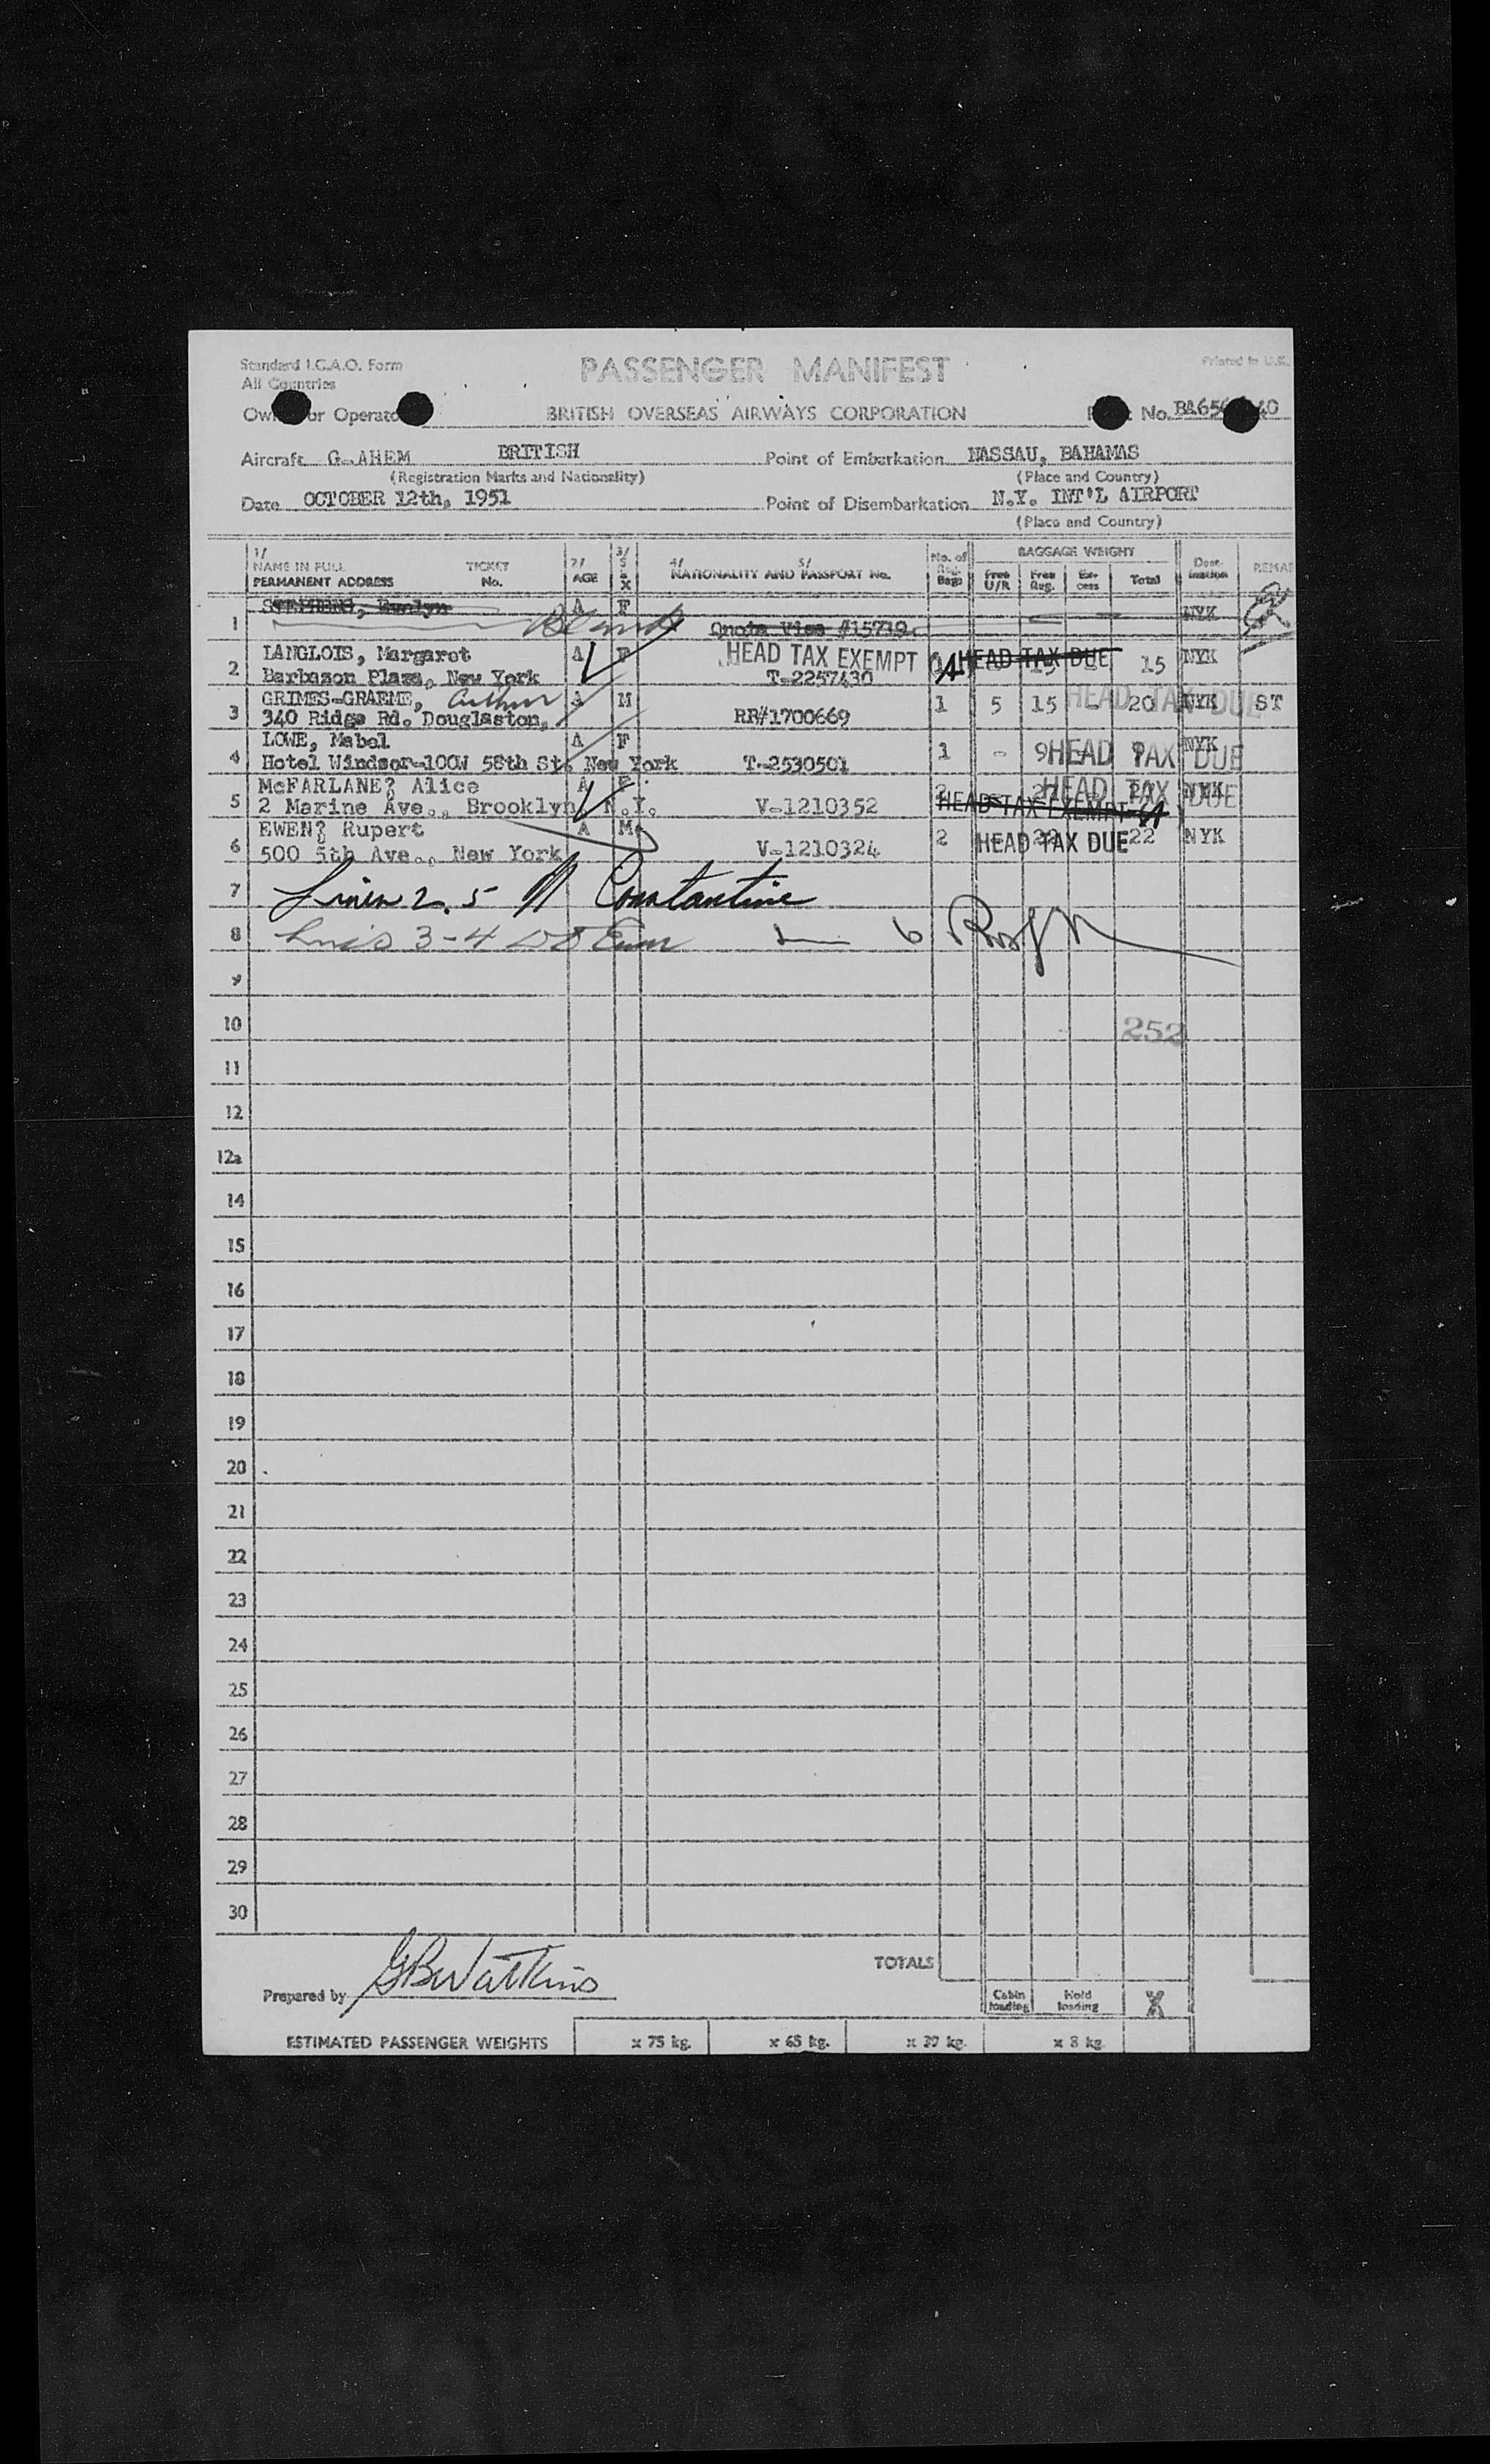 Standard I.C.A.O. Form
All Countries
PASSENGER MANIFEST
Printed in U.K.
Operator
BRITISH OVERSEAS AIRWAYS CORPORATION
No.
Aircraft G-AHEM BRITISH
Point of Embarkation NASSAU, BAHAMAS
(Registration Marks and Nationality)
(Place and Country)
Date OCTOBER 12th, 1951
Point of Disembarkation N.Y. INT'L AIRPORT
(Place and Country)
1/ NAME IN FULL TICKET 2/ AGE 3/ SEX 4/ 5/ NATIONALITY AND PASSPORT No. No. of Reg. Bags BAGGAGE WEIGHT Dest-ination
PERMANENT ADDRESS No. Free U/R Free Reg. Ex-cess Total
1 STEPHENS, Evelyn A F NYK
Quota Visa #15719
2 LANGLOIS, Margaret A F HEAD TAX EXEMPT HEAD TAX DUE 15 15 NYK
Barbazon Plaza, New York T-2257430
3 GRIMES-GRAEME, Arthur A M 1 5 15 HEAD TAX DUE 20 NYK ST
340 Ridge Rd. Douglaston, RR#1700669
4 LOWE, Mabel A F 1 - 9 HEAD TAX DUE 9 NYK
Hotel Windsor-100W 58th St. New York T-2530501
5 McFARLANE? Alice A F HEAD TAX DUE NYK
2 Marine Ave., Brooklyn, N.Y. V-1210352 HEAD TAX EXEMPT
6 EWEN? Rupert A M 2 22 HEAD TAX DUE 22 NYK
500 5th Ave., New York V-1210324
7 Lines 2. 5 Constantine
8 3-4 6
9
10 252
11
12
12a
14
15
16
17
18
19
20
21
22
23
24
25
26
27
28
29
30
TOTALS
Prepared by GB Watkins
Cabin loading Hold loading X
ESTIMATED PASSENGER WEIGHTS x 75 kg. x 65 kg. x 39 kg. x 8 kg.